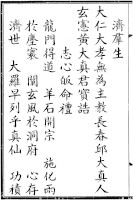 濟羣生
大仁大孝無為主教長春邱大真人
玄憲黃大真君寶誥
志心皈命禮
龍門得道　羊石開宗　施化雨
於塵寰　闡玄風於洞府　心存
濟世　大羅早列乎真仙　功積